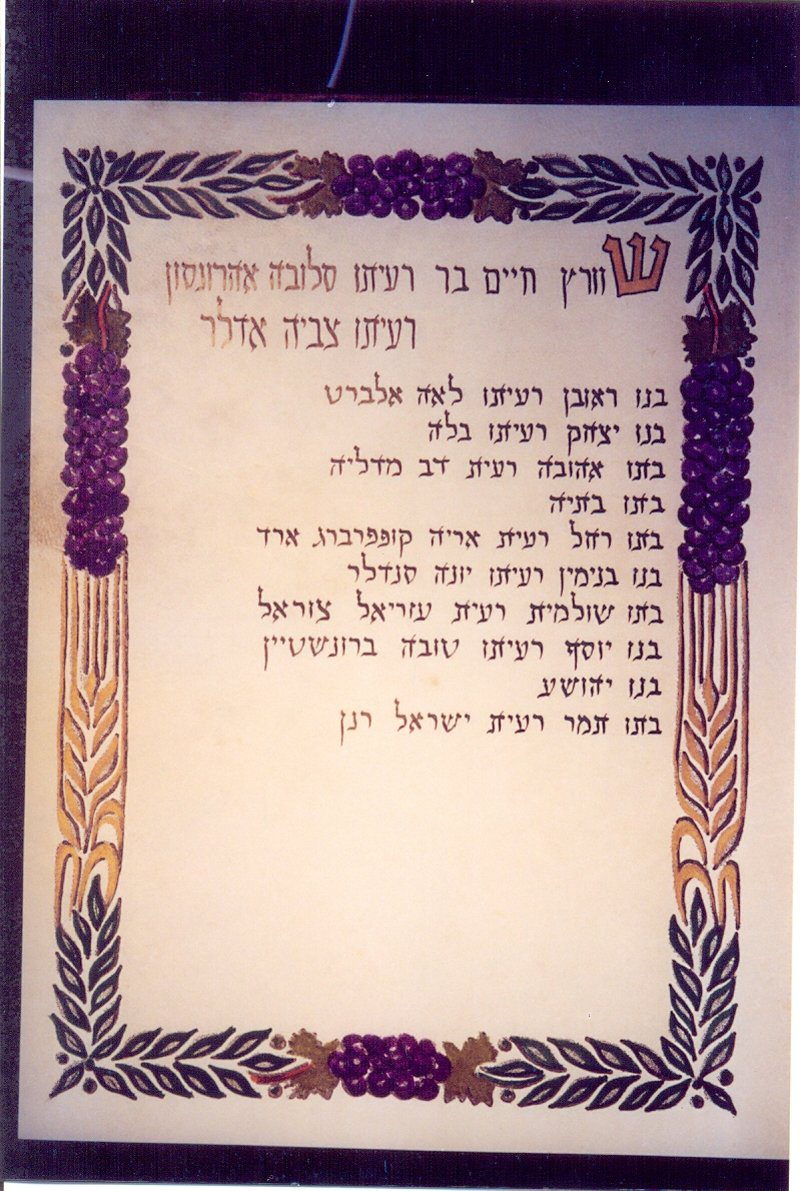 שוורץ חיים בר רעיתו סלובה אהרונסון
רעיתו צביה אדלר
בנו ראובן רעיתו לאה אלברט
בנו יצחק רעיתו בלה
בתו אהובה רעית דב מדליה
בתו בתיה
בתו רחל רעית אריה קופפרברג ארד
בנו בנימין רעיתו יונה סנדלר
בתו שולמית רעית עזריאל צוראל
בנו יוסף רעיתו טובה ברונשטיין
בנו יהושע
בתו תמר רעית ישראל רנן